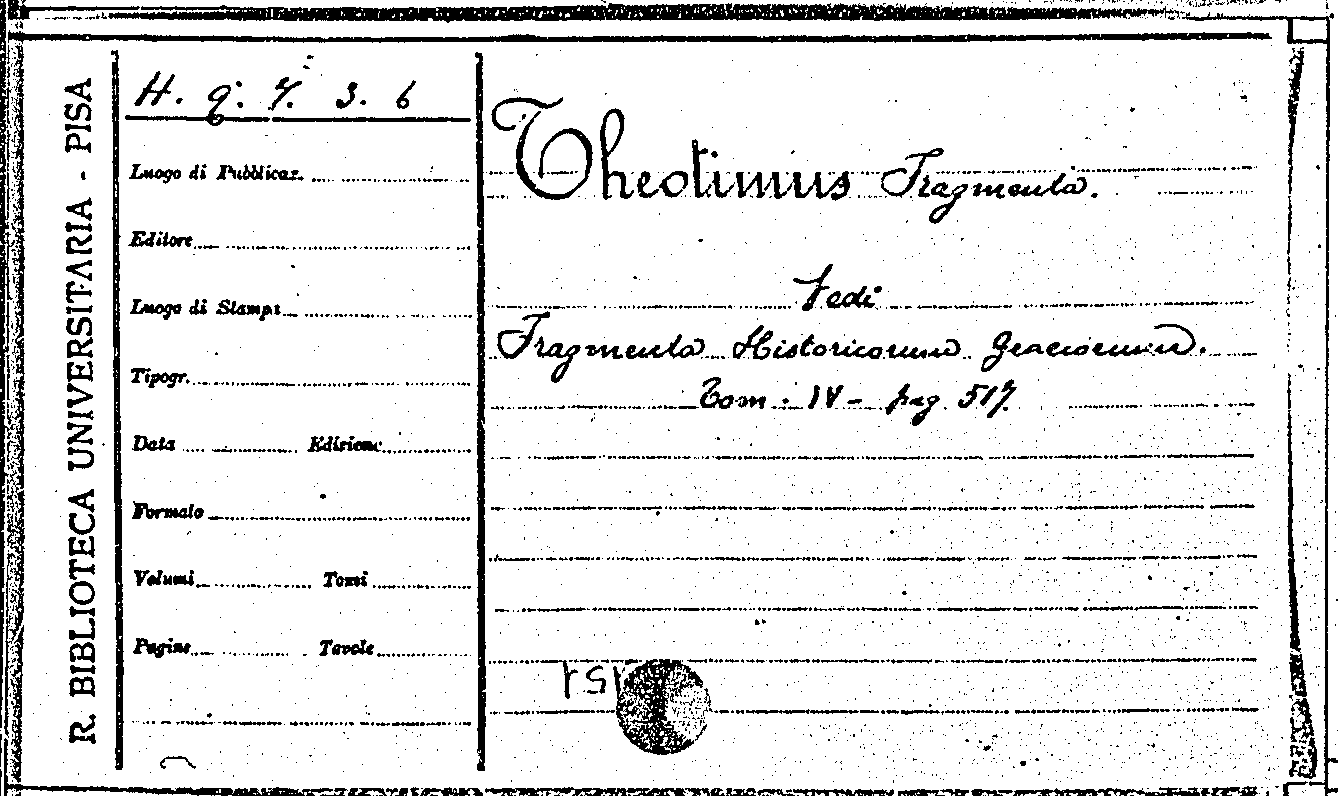 R. BIBLIOTECA UNIVERSITARIA - PISA
H. q. 7. 3. 6
Luogo di Pubblicaz.
Editore
Luogo di Stampa
Tipogr.
Data Edizione
Formato
Volumi Tomi
Pagine Tavole
Theotimus Fragmenta.
Vedi
Fragmenta Historicorum Graecorum.
Tom. IV - pag 517.